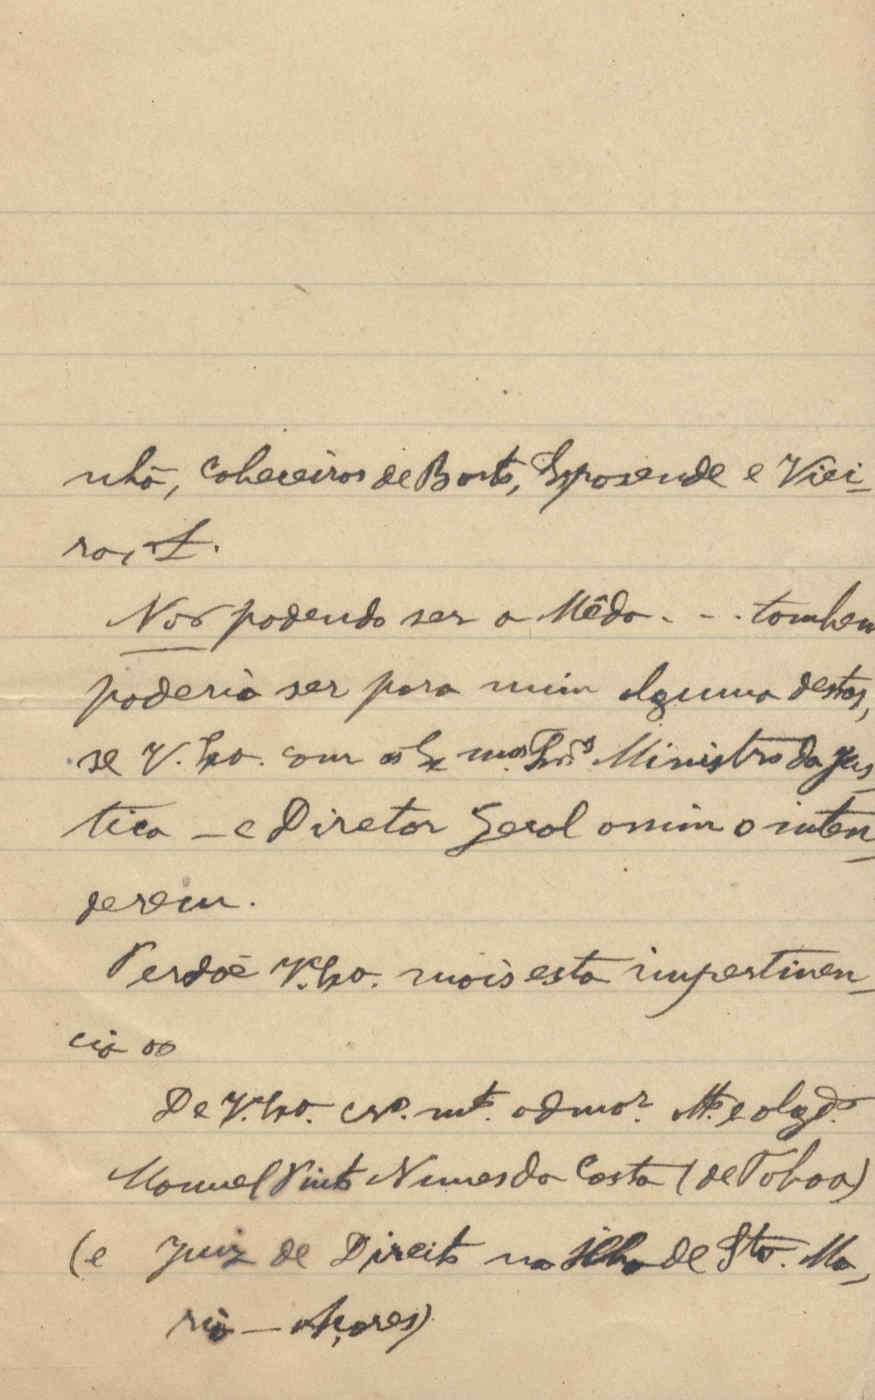 nhã, Cabeceiros de Basto, Espozende e Viei-
ra, &.
Não podendo ser a Mêda... tambem
poderia ser para mim alguma destas,
se V. Exa. com os Ex mos. Snrs Ministro da Jus-
tica - e Diretor Geral assim o enten-
derem.
Perdôe V. Exa. mais esta impertinen-
cia ao
De V. Exa. cro. mto. admor. Mto. e obgdo.
Manuel Pinto Nunes da Costa (de Taboa)
(e Juiz de Direito na Ilha de Sta. Ma-
ria - Açores)